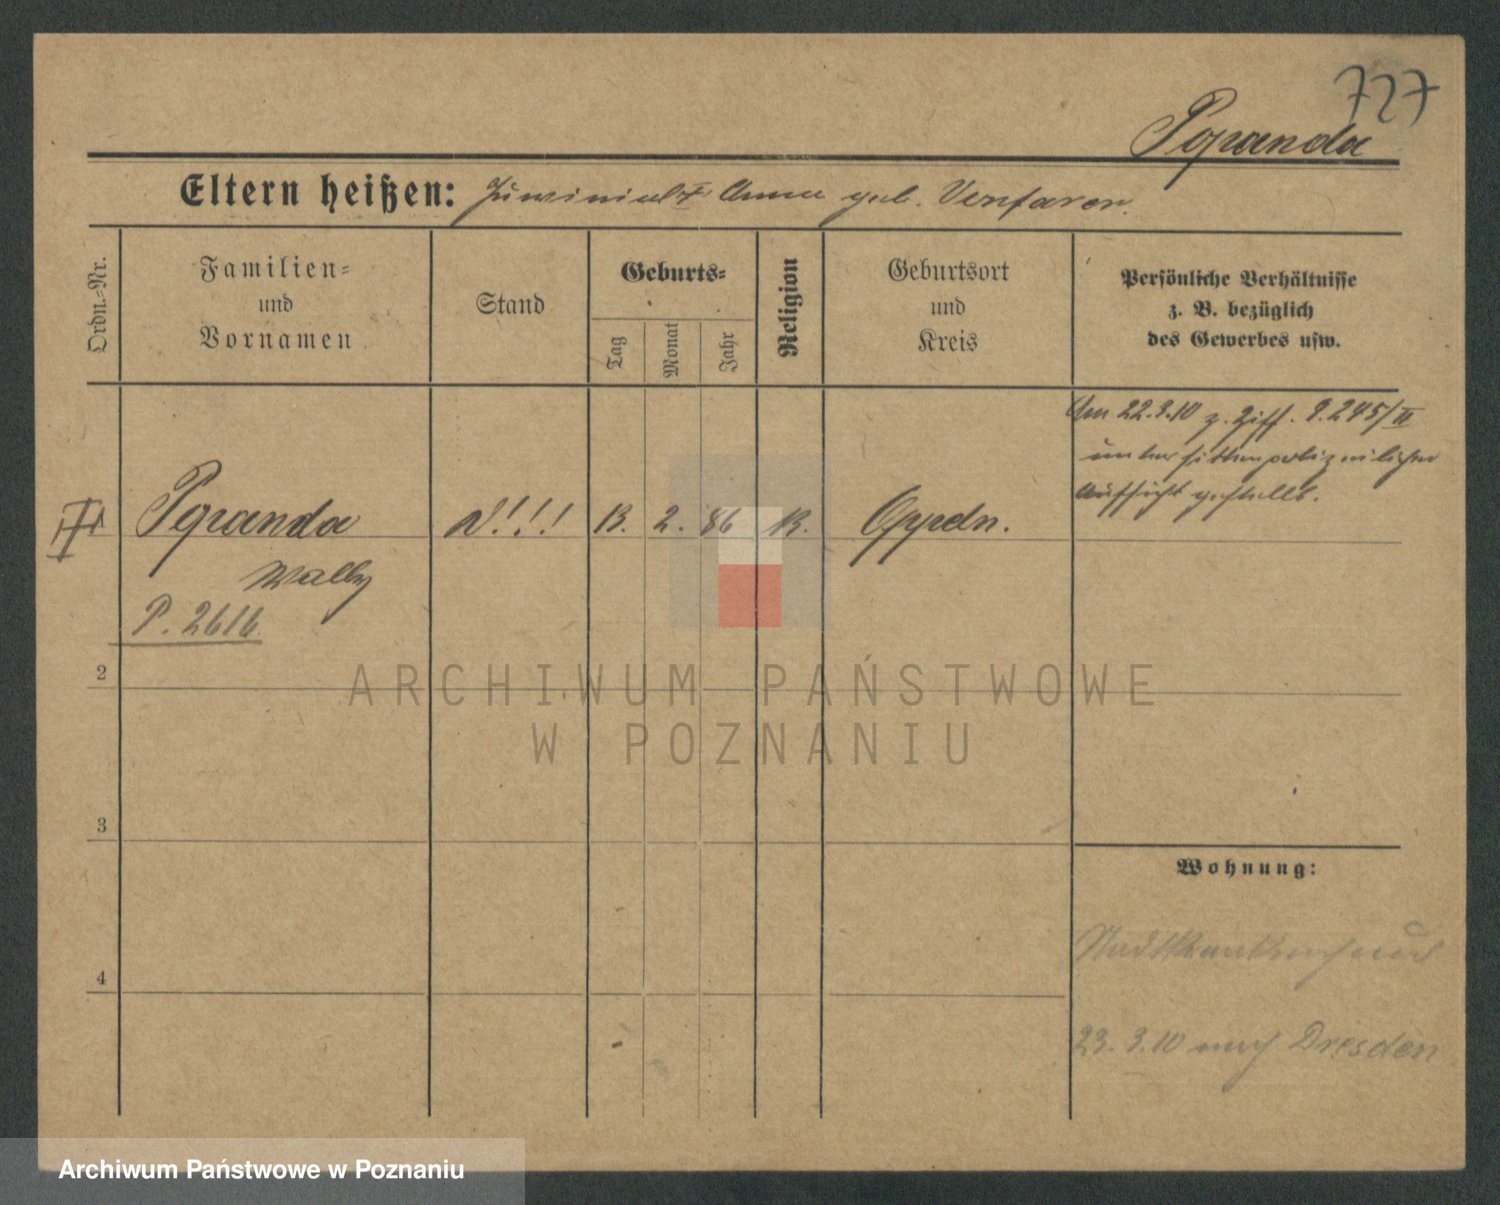 727
Pgranda
Eltern heißen: Anna geb.
Ordn.-Nr.
Familien=
und
Vornamen
Stand
Geburts=
Tag
Monat
Jahr
Religion
Geburtsort
und
Kreis
Persönliche Verhältnisse
z. B. bezüglich
des Gewerbes usw.
Am 22.3.10 z. Ziff. J.245/III
unter sittenpolizeilicher
Aufsicht gestellt.
Pgranda !!! 13. 2. 86 K.
Wally
P. 2616
2
3
4
Wohnung:
Stadtkrankenhaus
23.3.10 nach Dresden
ARCHIWUM PAŃSTWOWE
W POZNANIU
Archiwum Państwowe w Poznaniu